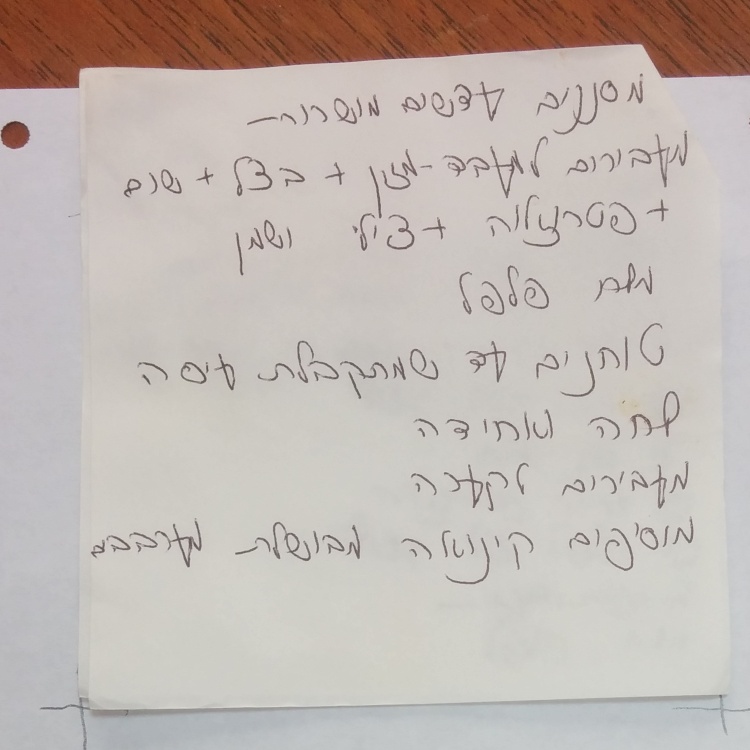 מסננים עדשים מושרות -
מעבירים למעבד-מזון + בצל + שום
+ פטרוזילוה + צ'ילי ושמן
מלח פלפל
טוחנים עד שמתקבלת עיסה
לחה ואחידה
מעבירים לקערה
מוסיפים קינואה מבושלת מערבבים